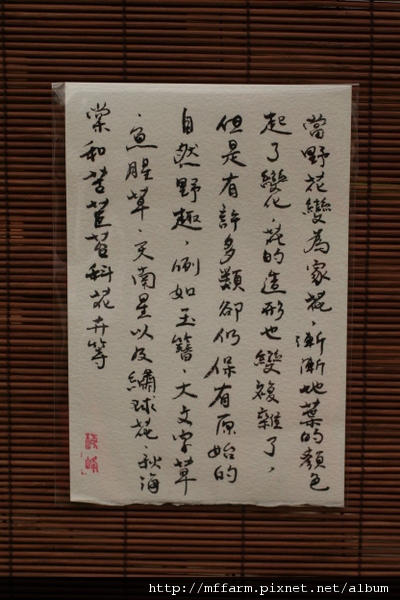 當野花變為家花，漸漸地葉的顏色
起了變化，花的造形也變複雜了，
但是有許多類卻仍保有原始的
自然野趣，例如玉簪、大文字草
、魚腥草、天南星以及繡球花、秋海
棠和苦苣苔科花卉等
http://mffarm.pixnet.net/album